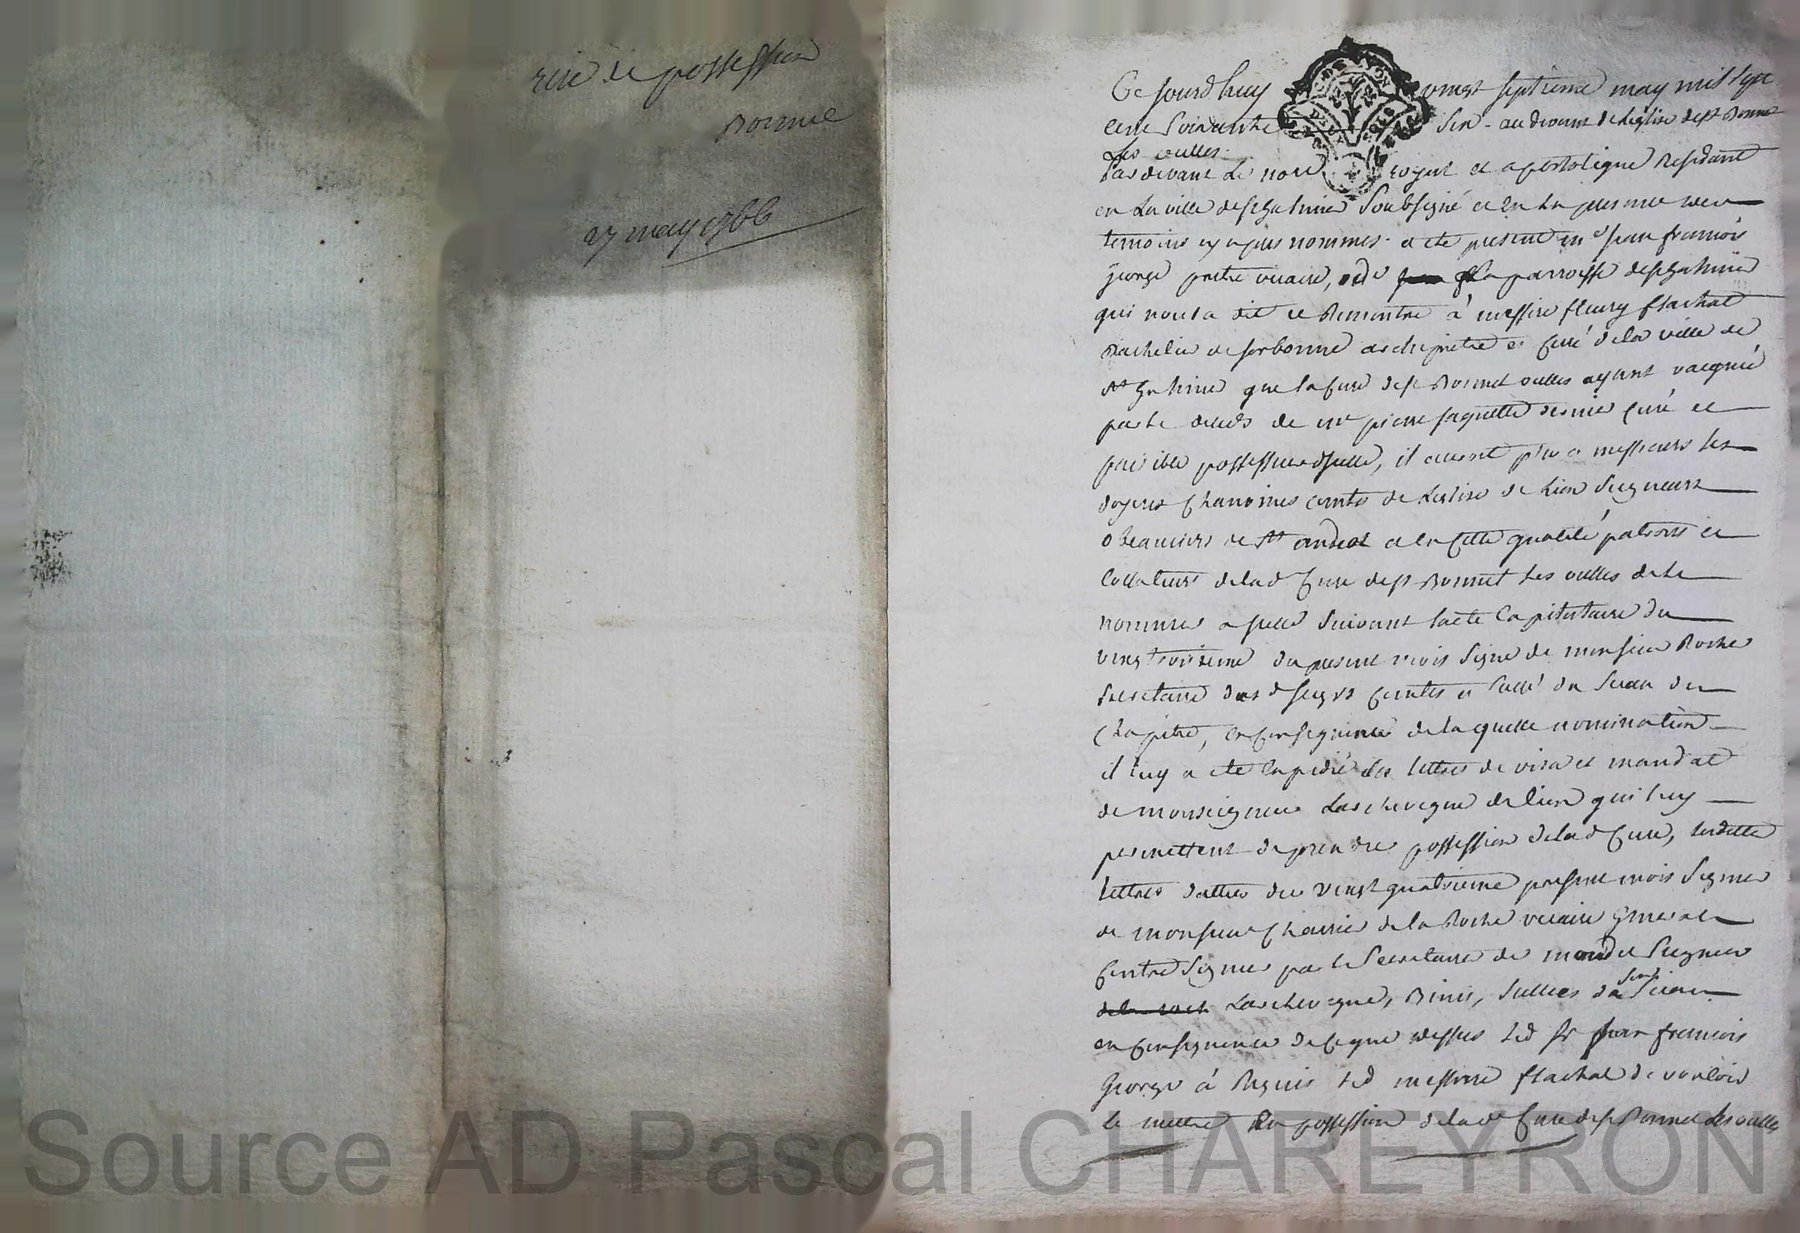 de possession
Bonnet
27 may 1766
Ce jourd'huy vingt septieme may mil sept
cent soixante six au devant de l'eglise de st Bonnet
les oulles
par devant le nore royal et apostolique residant
en la ville de st Galmier soubsigné et en la presence des
temoins cy apres nommes a eté present mre jean francois
george pretre vicaire, de la parroisse de st galmier
qui nous a dit et remontré à messire fleury flachat
Bachelier de sorbonne archipretre et curé de la ville de
st galmier que la cure de st Bonnet oulles ayant vacquée
par le deceds de mre pierre paquette dernier curé et
paisible possesseur d'jcelle, il auroit plu a messieurs les
doyens chanoines comtes de l'eglise de lion seigneurs
obeanciers de st andeol et en cette qualité patrons et
collateurs de la d cure de st Bonnet les oulles de le
nommer a jcelle suivant l'acte capitulaire du
vingt troisieme du present mois signé de monsieur Roche
secretaire des d seigrs comtes et scellé du sceau du
chapitre, en consequence de laquelle nomination
il luy a eté expedié des lettres de visa et mandat
de monseigneur l'archeveque de lion qui luy
permettent de prendre possession de la d cure, lesdittes
lettres dattées du vingt quatrieme present mois signées
de monsieur Charrier de la Roche vicaire general
contre signées par le secretaire de mondit seigneur
l'archeveque, scellées de son sceau
en consequence de ce que dessus led sr jean francois
George à requis led messire flachat de vouloir
le mettre en possession de la d cure de st Bonnet les oulles
Source AD Pascal CHAREYRON